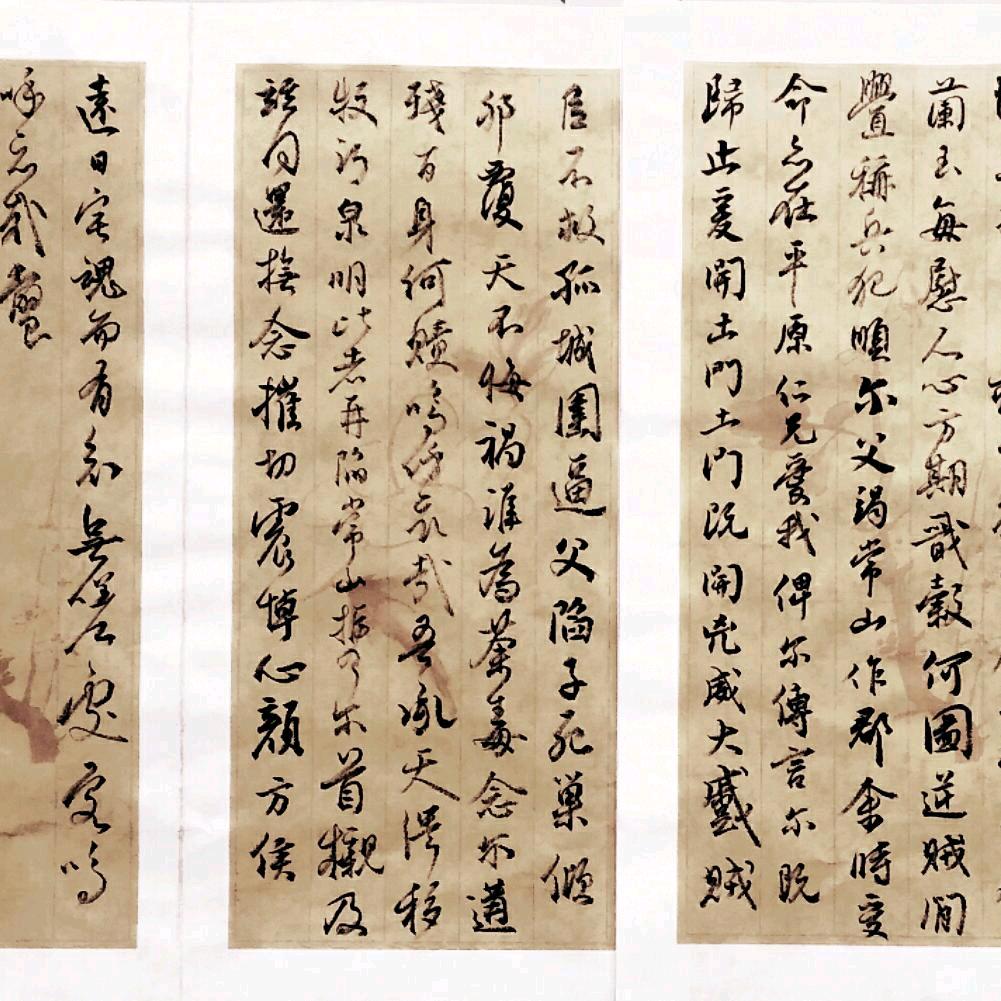 蘭玉每慰人心方期戩穀何圖逆賊間
釁稱兵犯順尔父竭常山作郡余時受
命亦在平原仁兄愛我俾尔傳言尔既
歸止爰開土門土門既開兇威大蹙賊
臣不救孤城圍逼父陷子死巢傾
卵覆天不悔禍誰為荼毒念尔遘
殘百身何贖嗚呼哀哉吾承天澤移
牧河泉明比者再陷常山攜尔首櫬及
茲同還撫念摧切震悼心顏方俟
遠日宅魂而有知無嗟久客嗚
呼哀哉尚饗